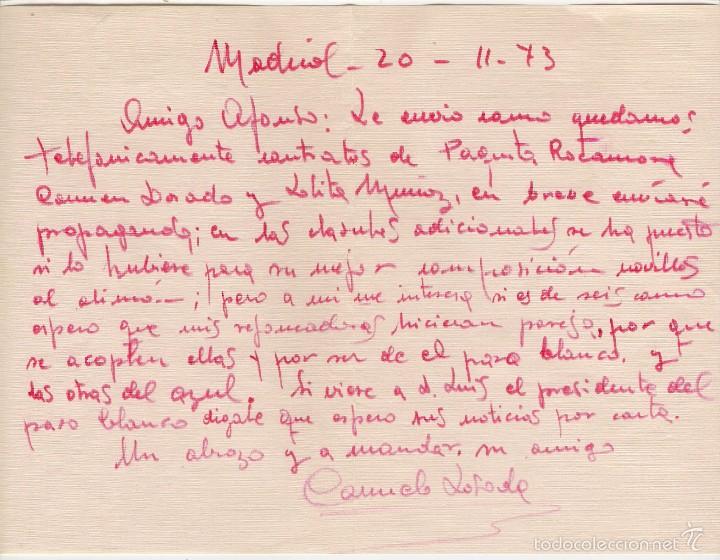 Madrid - 20 - 11-73
Amigo Afonso: Le envio como quedamos
telefonicamente contratos de Paquita Rocamora
Carmen Dorado y Lolita Muñoz, en breve enviaré
propaganda; en las clausulas adicionales se ha puesto
si lo hubiere para su mejor composición novillos
al alimón —; pero a mi me interesa si es de seis como
espero que mis rejoneadoras hicieran pareja, por que
se acoplen ellas y por ser de el paso blanco, y
las otras del azul. Si viere a d. Luis el presidente del
paso blanco digale que espero sus noticias por carta.
Un abrazo y a mandar, su amigo
Carmelo Losada
todocoleccion.net